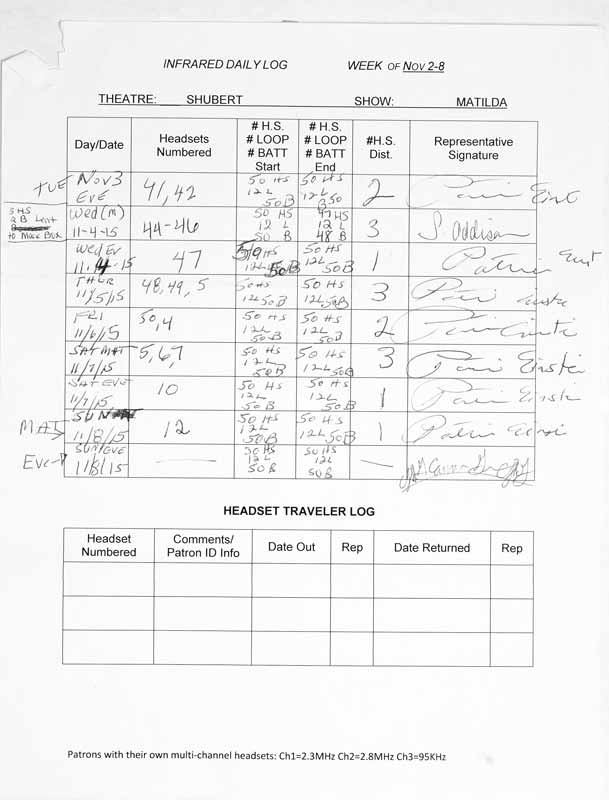 INFRARED DAILY LOG WEEK OF NOV 2-8
THEATRE: SHUBERT SHOW: MATILDA
Day/Date Headsets Numbered # H.S. # LOOP # BATT Start # H.S. # LOOP # BATT End #H.S. Dist. Representative Signature
TUE Nov 3 EVE 41, 42 50 HS 12L 50B 50 HS 12L 50B 2
5 HS
2 B Lent
to Music Box
Wed (m) 11-4-15 44-46 50 HS 12 L 50 B 47 HS 12 L 48 B 3 S. Addison
Wed Ev 11.4.15 47 50 HS 12L 50B 50 HS 12L 50B 1
THUR 11/5/15 48, 49, 5 50HS 12L 50B 50 HS 12L 50B 3
FRI 11/6/15 50, 4 50 HS 12L 50B 50 HS 12L 50B 2
SAT MAT 11/7/15 5, 6, 7 50 HS 12L 50B 50 HS 12L 50B 3
SAT EVE 11/7/15 10 50 HS 12L 50B 50 HS 12L 50B 1
MAT SUN 11/8/15 12 50 HS 12L 50B 50 HS 12L 50B 1
Eve SUN EVE 11/8/15 — 50 HS 12L 50B 50 HS 12L 50B —
HEADSET TRAVELER LOG
Headset Numbered Comments/ Patron ID Info Date Out Rep Date Returned Rep
Patrons with their own multi-channel headsets: Ch1=2.3MHz Ch2=2.8MHz Ch3=95KHz